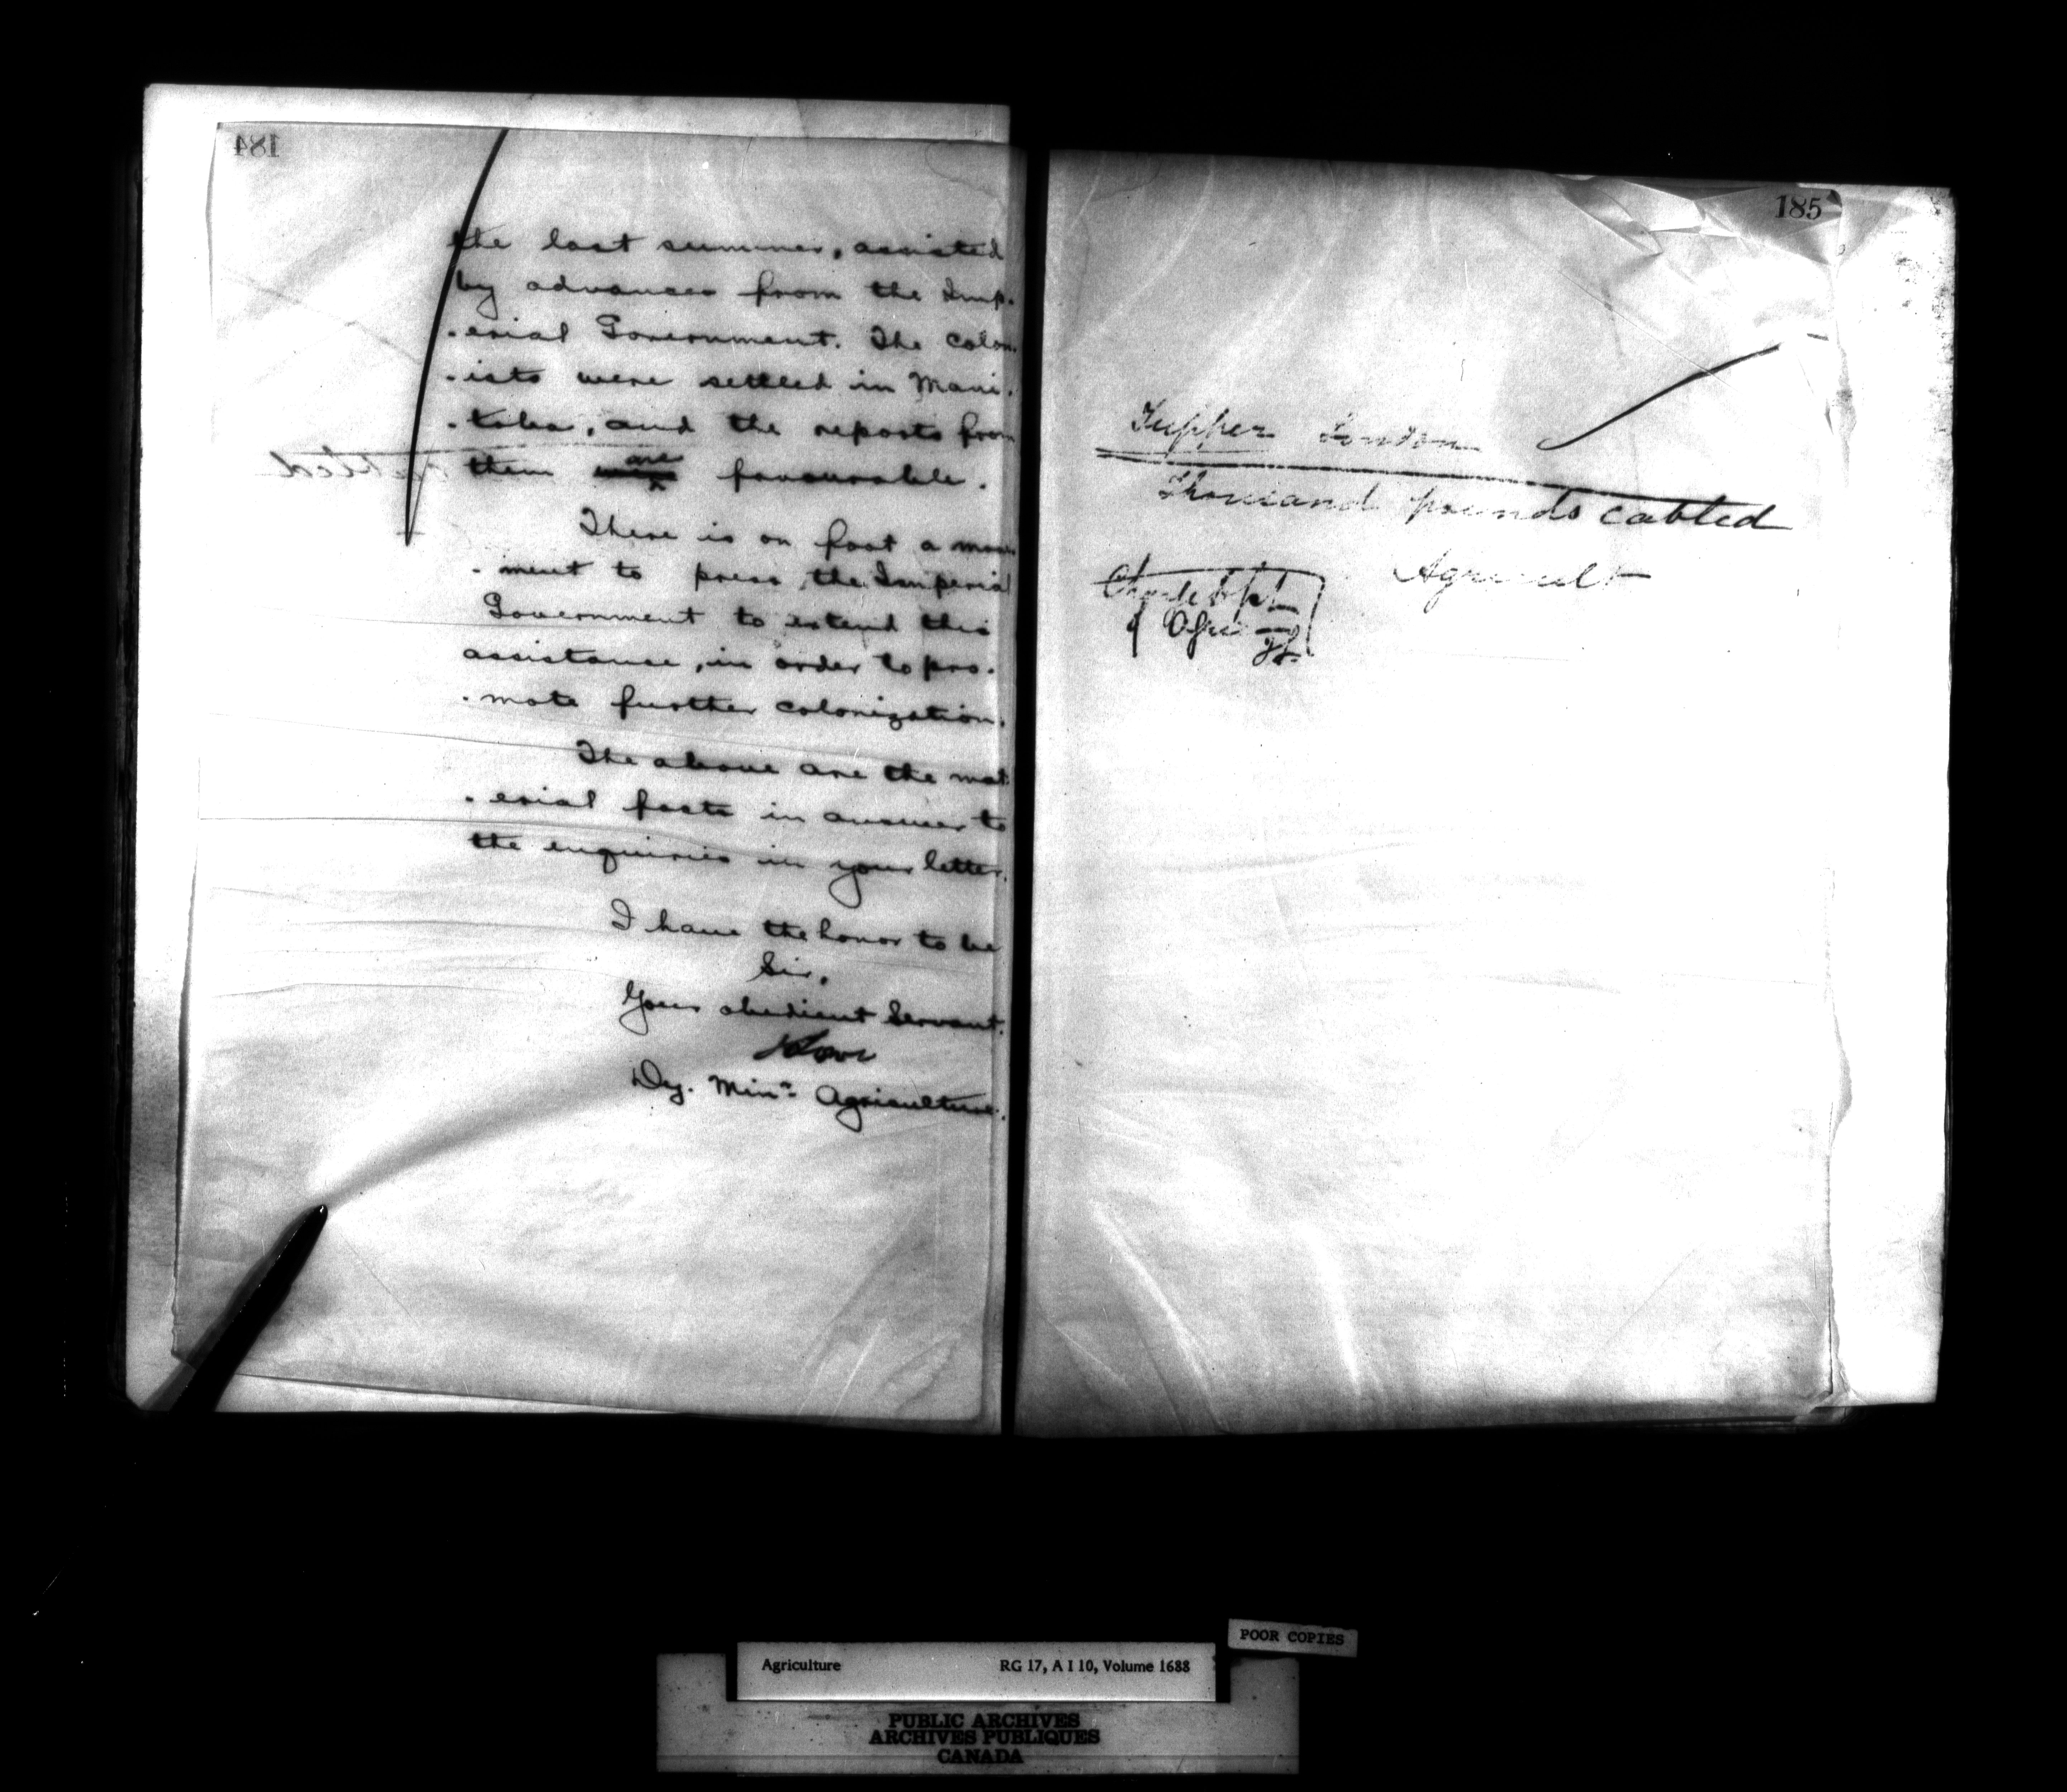 184
the last summer, assisted
by advances from the Imp-
-erial Government. The Colon-
-ists were settled in Mani-
-toba, and the reports from
them are favourable.
There is on foot a move-
-ment to press the Imperial
Government to extend this
assistance, in order to pro-
-mote further colonization.
The above are the mat-
-erial facts in answer to
the enquiries in your letter.
I have the honor to be
Sir,
Your obedient Servant.
Lowe
Dy. Minr. Agriculture.
185
Tupper London
Thousand pounds cabled
Agricult
Charge Dept
of Agri
JL.
POOR COPIES
Agriculture RG 17, A I 10, Volume 1688
PUBLIC ARCHIVES
ARCHIVES PUBLIQUES
CANADA